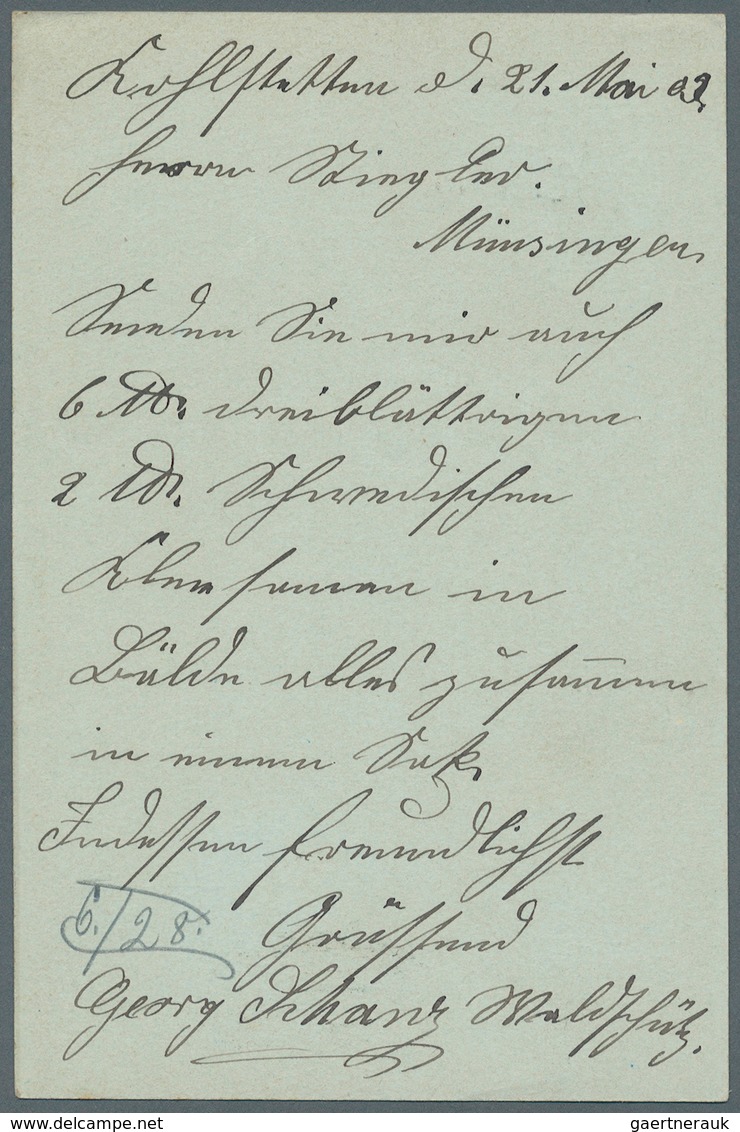 Kohlstetten d. 21. Mai 02.
Herrn Stiegler.
Münsingen
Senden Sie mir auch
6 Pfd. dreiblättrigen
2 Pfd. Schwedischen
Kleesamen in
Bälde alles zusammen
in einem Sak
Indessen freundlichst
6./28.
Grüssend
Georg Schanz Waldschütz.
gaertnerauk